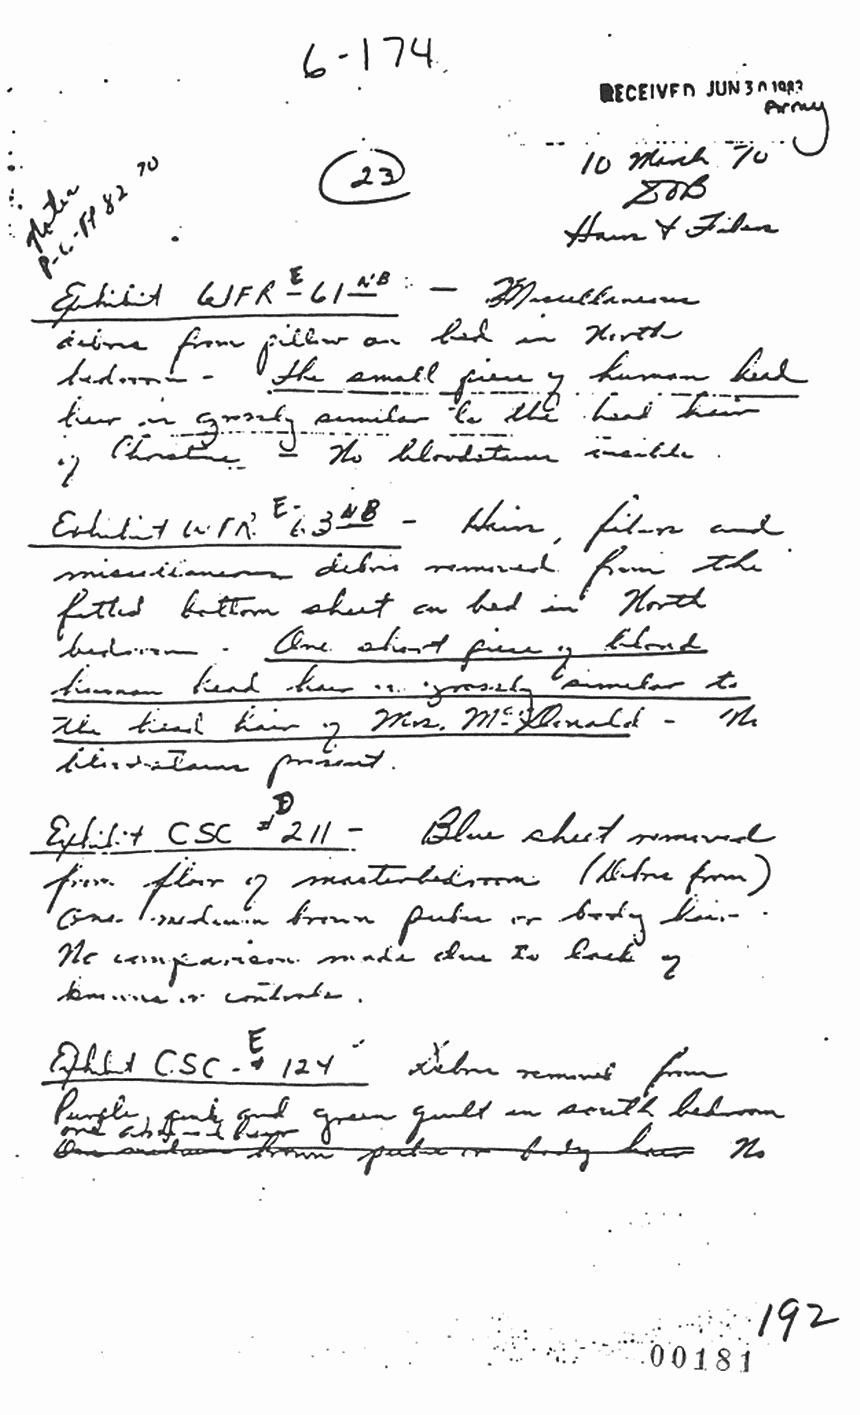 6-174
RECEIVED JUN 30 1983
Army
10 March 70
(23)
Notes
P-C-FP 82 70
Hairs & Fibers
Exhibit WFR E-61 NB - Miscellaneous
debris from pillow on bed in North
bedroom - The small piece of human head
hair is grossly similar to the head hair
of Christine - No bloodstains visible.
Exhibit WFR E-63 NB - Hairs, fibers and
miscellaneous debris removed from the
fitted bottom sheet on bed in North
bedroom - One short piece of blond
human head hair is grossly similar to
the head hair of Mrs. McDonald - No
bloodstains present.
Exhibit CSC # D 211 - Blue sheet removed
from floor of masterbedroom (Debris from)
One medium brown pubic or body hair.
No comparison made due to lack of
knowns or controls.
Exhibit CSC - # E 124 Debris removed from
Purple, pink and green quilt in south bedroom
one animal hair
One medium brown pubic or body hair No
192
00181